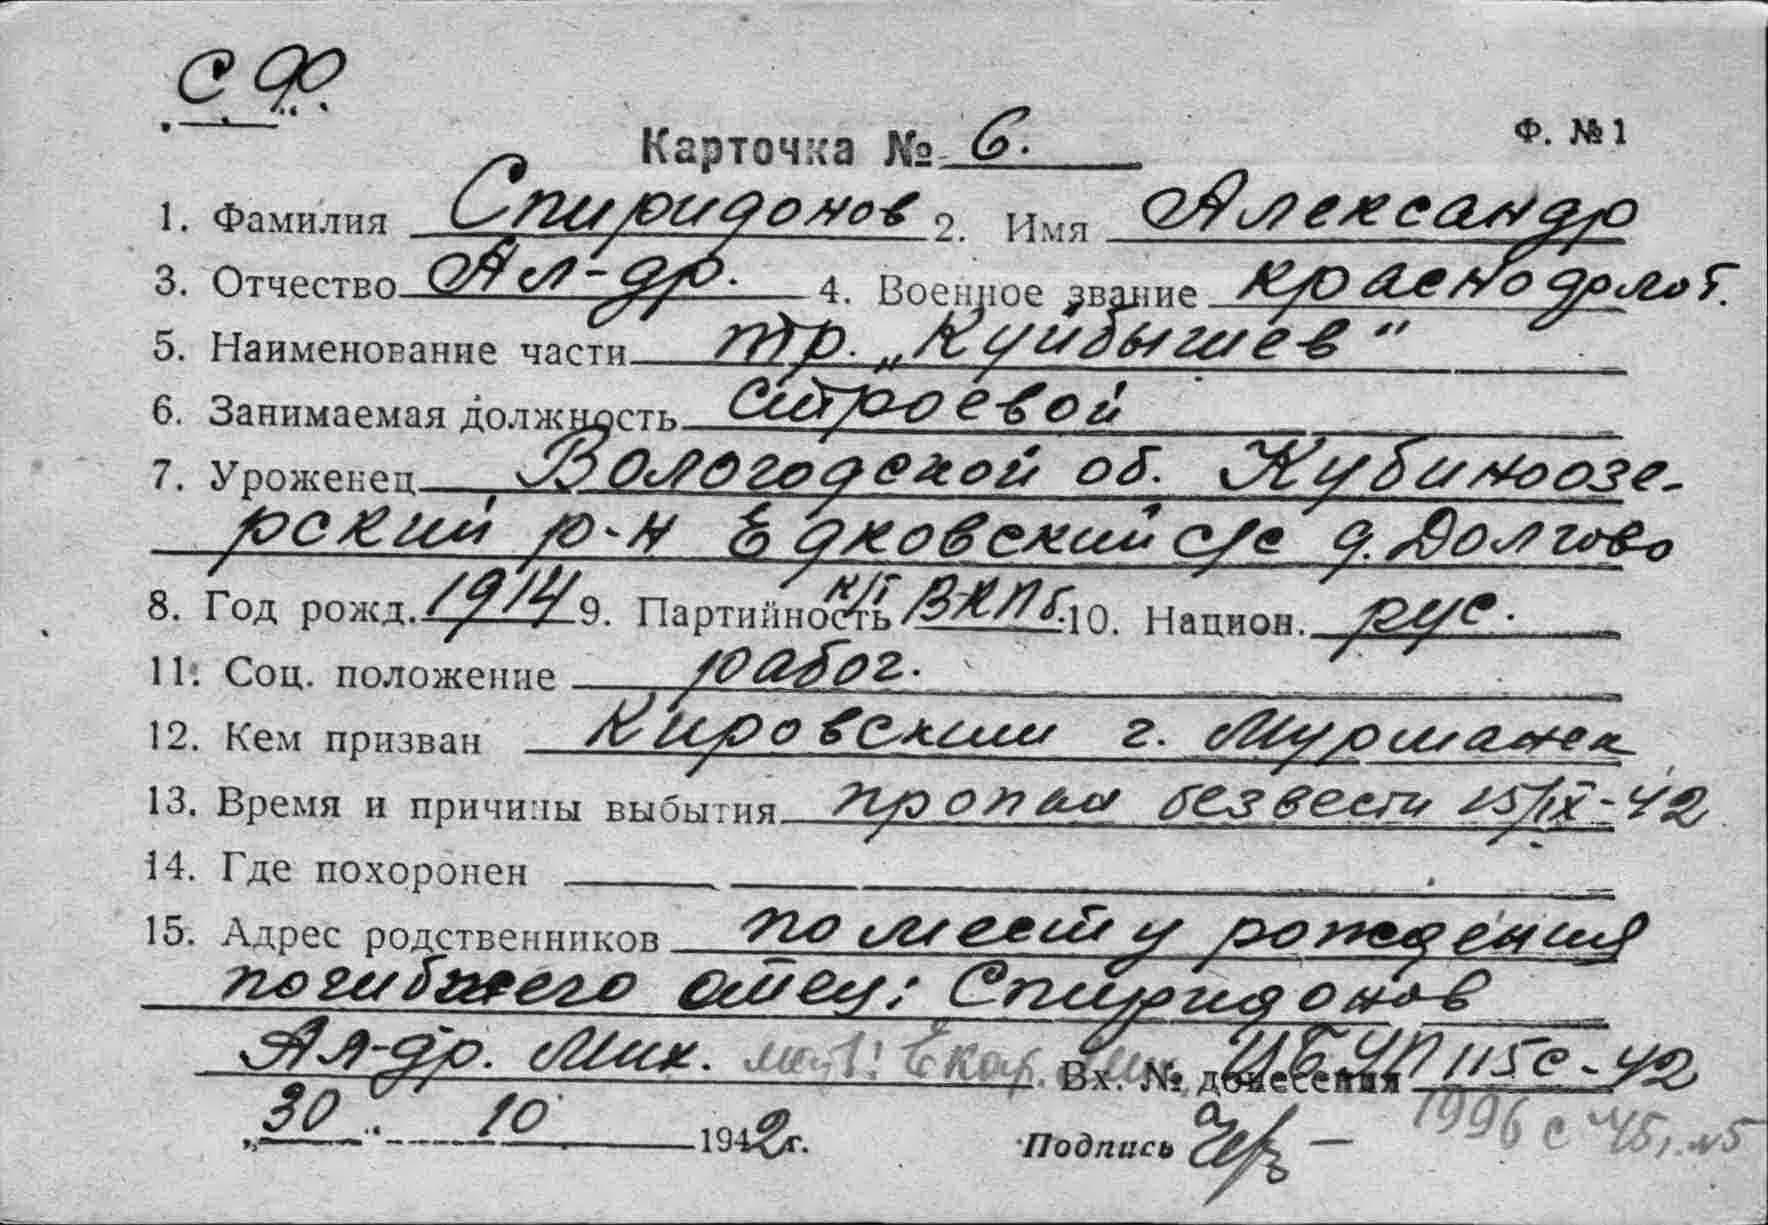 С Ф.
Карточка № 6.
Ф. № 1
1. Фамилия Спиридонов 2. Имя Александр
3. Отчество Ал-др. 4. Военное звание краснофлот.
5. Наименование части тр. „Куйбышев"
6. Занимаемая должность строевой
7. Уроженец Вологодской об. Кубиноозе-
рский р-н Едковский с/с д. Долгово
8. Год рожд. 1914 9. Партийность к/т ВКПб. 10. Национ. рус.
11. Соц. положение рабоч.
12. Кем призван Кировским г. Мурманск
13. Время и причины выбытия пропал без вести 15/IX-42
14. Где похоронен
15. Адрес родственников по месту рождения
погибшего отец: Спиридонов
Ал-др. Мих. мать: Екат. Вх. № донесения ЦБ УП 115с-42
„30" 10 1942г. Подпись 1996 с 45г.